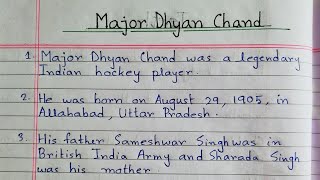 Major Dhyan Chand
1. Major Dhyan Chand was a legendary
Indian hockey player.
2. He was born on August 29, 1905, in
Allahabad, Uttar Pradesh.
3. His father Sameshwar Singh was in
British India Army and Sharada Singh
was his mother